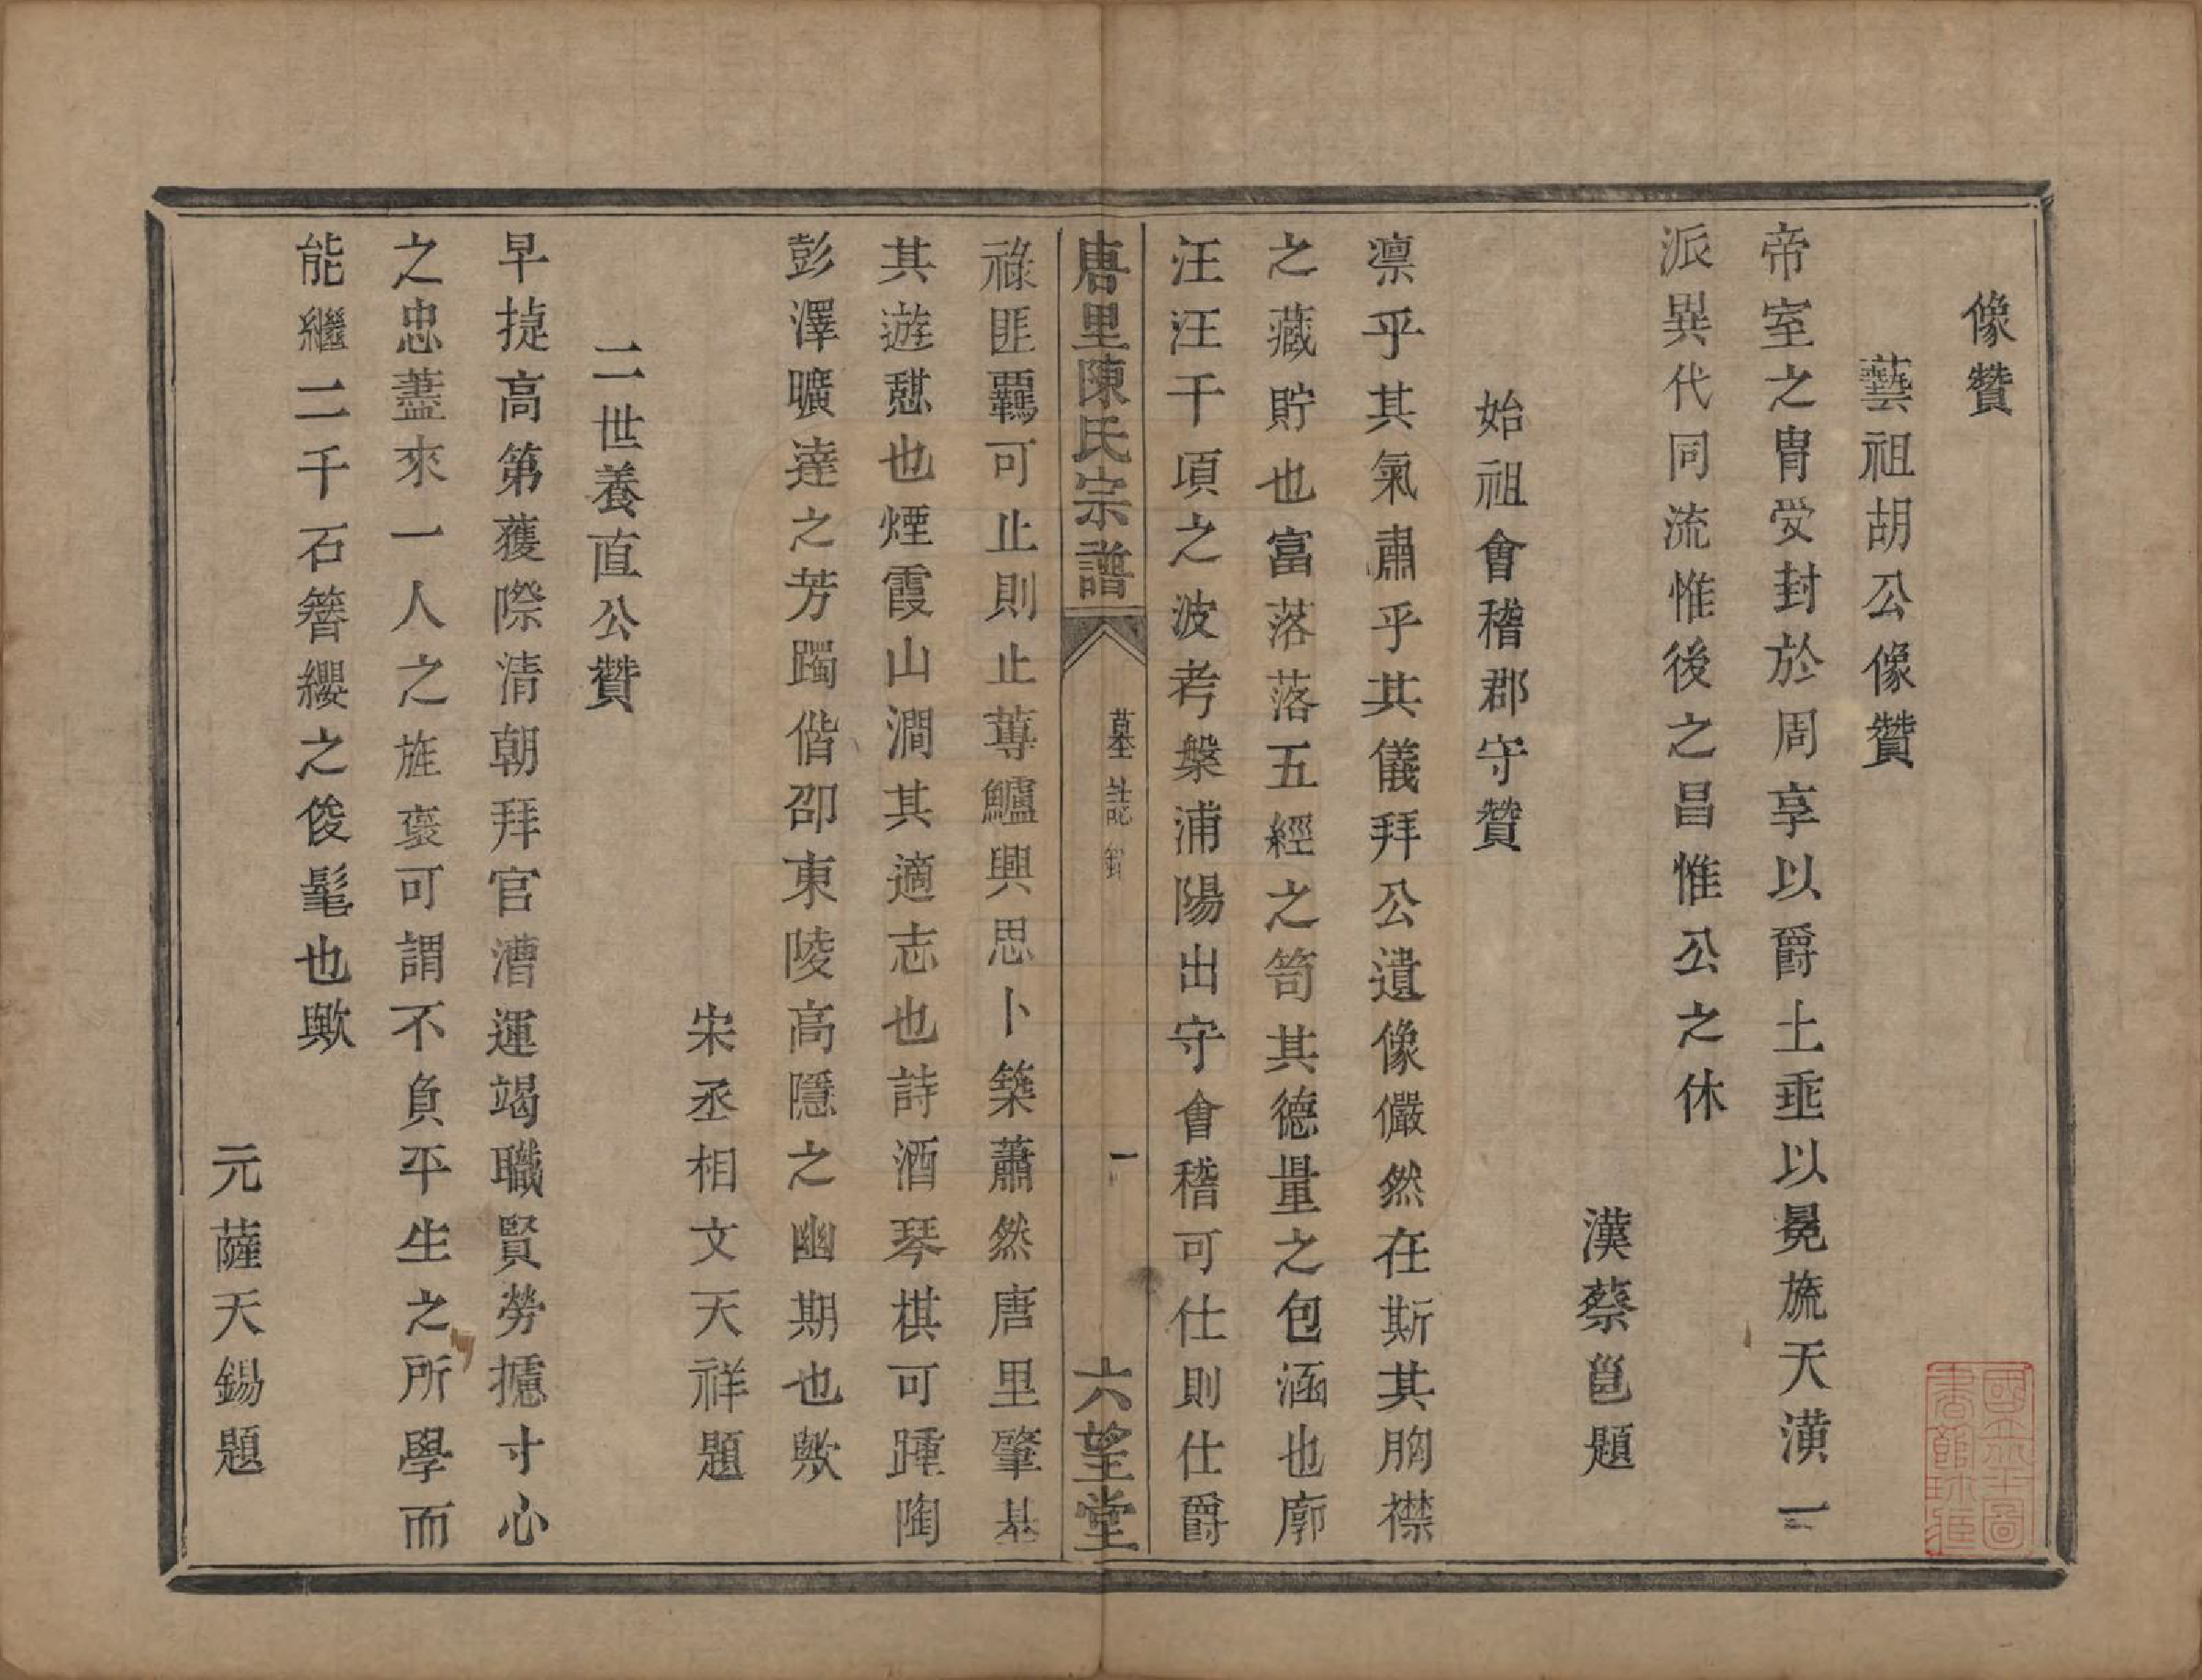 像贊
藝祖胡公像贊
帝室之冑受封於周享以爵土垂以冕旒天潢一
派異代同流惟後之昌惟公之休
漢蔡邕題
始祖會稽郡守贊
凛乎其氣肅乎其儀拜公遺像儼然在斯其胸襟
之藏貯也富落落五經之笥其德量之包涵也廓
汪汪千頃之波考槃浦陽出守會稽可仕則仕爵
唐里陳氏宗譜
墓誌銘
一
六望堂
祿匪覊可止則止蓴鱸興思卜築蕭然唐里肇基
其遊憇也煙霞山澗其適志也詩酒琴棋可踵陶
彭澤曠達之芳躅偕邵東陵高隱之幽期也歟
宋丞相文天祥題
二世養直公贊
早㨗高第獲際清朝拜官漕運竭職賢勞攄寸心
之忠藎來一人之旌褒可謂不負平生之所學而
能繼二千石簪纓之俊髦也歟
元薩天錫題
國立北平圖書館珍藏